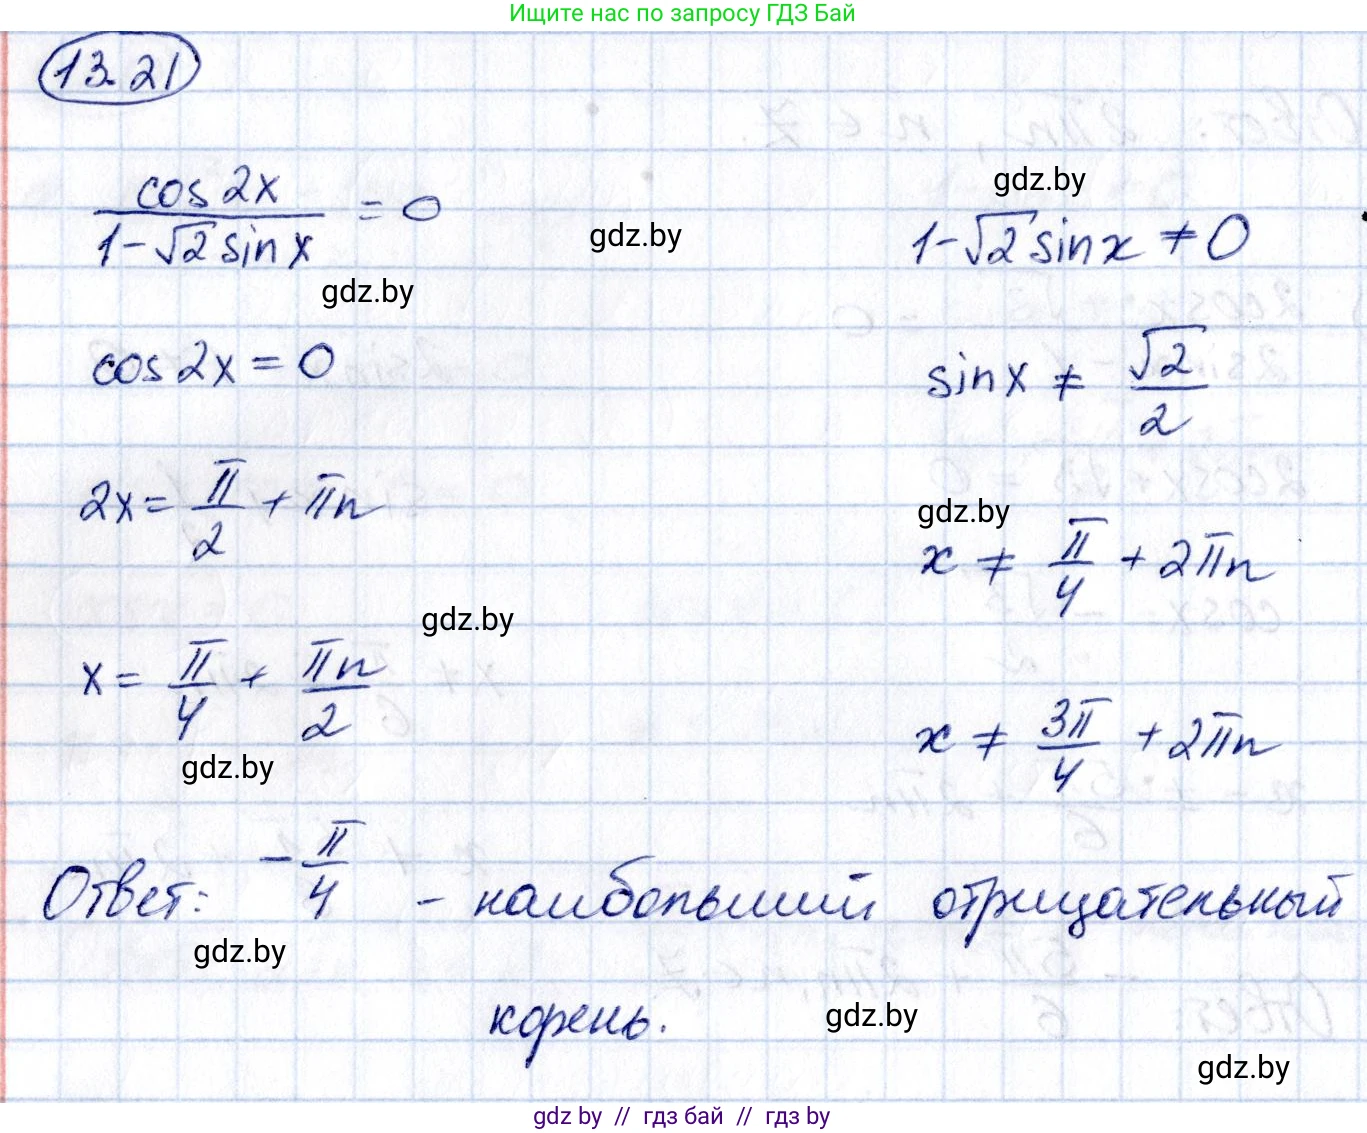 Ищите нас по запросу ГДЗ Бай
13.21
cos 2x / (1 - √2 sin x) = 0
1 - √2 sin x ≠ 0
gdz.by
gdz.by
gdz.by
cos 2x = 0
sin x ≠ √2 / 2
2x = π/2 + πn
gdz.by
x ≠ π/4 + 2πn
gdz.by
x = π/4 + πn/2
x ≠ 3π/4 + 2πn
gdz.by
Ответ: -π/4 - наибольший отрицательный
gdz.by
корень.
gdz.by
gdz.by
gdz by // гдз бай // гдз by